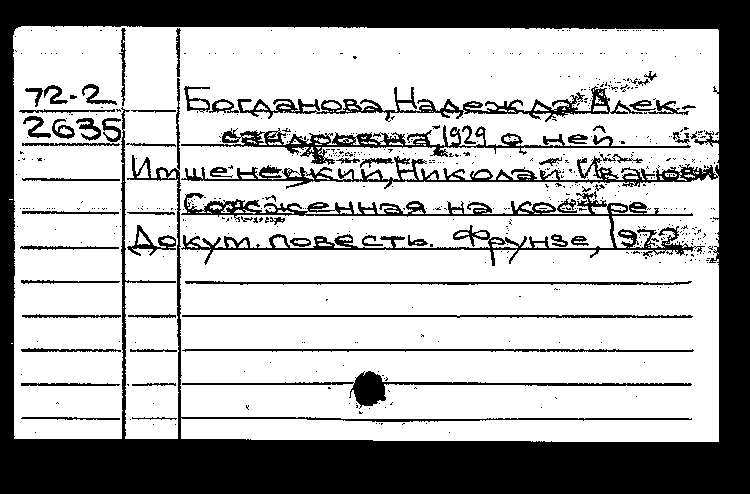 72-2
2635
Богданова, Надежда Алек-
сандровна, 1929, о ней.
Итшенецкий, Николай Иванович
Сожженная на костре.
Докум. повесть. Фрунзе, 1972